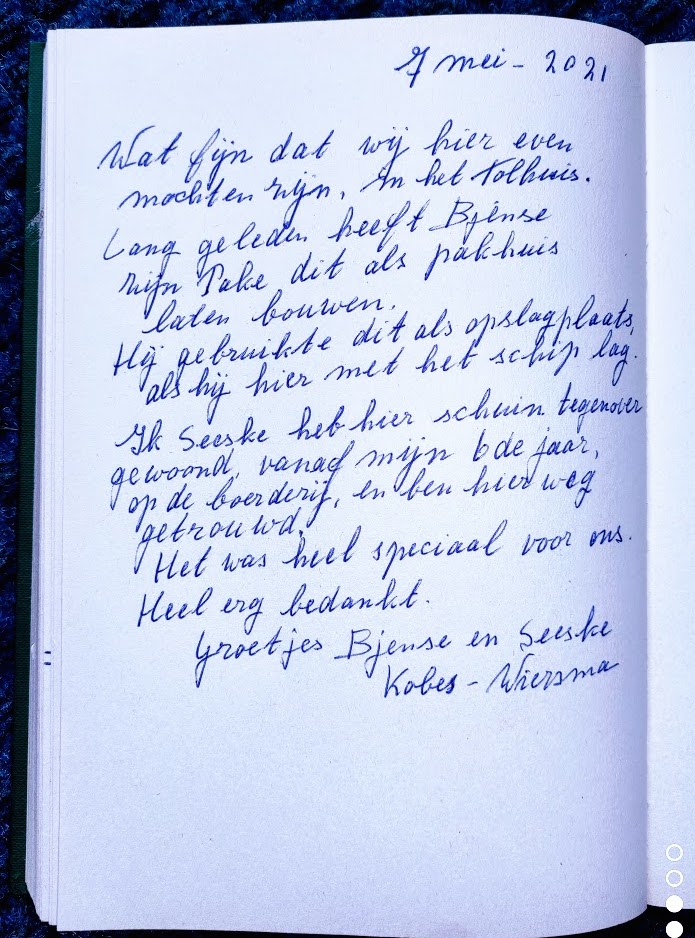 7 mei - 2021
Wat fijn dat wij hier even
mochten zijn, in het Tolhuis.
Lang geleden heeft Bjênse
zijn Pake dit als pakhuis
laten bouwen.
Hij gebruikte dit als opslagplaats,
als hij hier met het schip lag.
Ik Seeske heb hier schuin tegenover
gewoond, vanaf mijn 6de jaar,
op de boerderij, en ben hier weg
getrouwd.
Het was heel speciaal voor ons.
Heel erg bedankt.
Groetjes Bjense en Seeske
Kobes - Wiersma